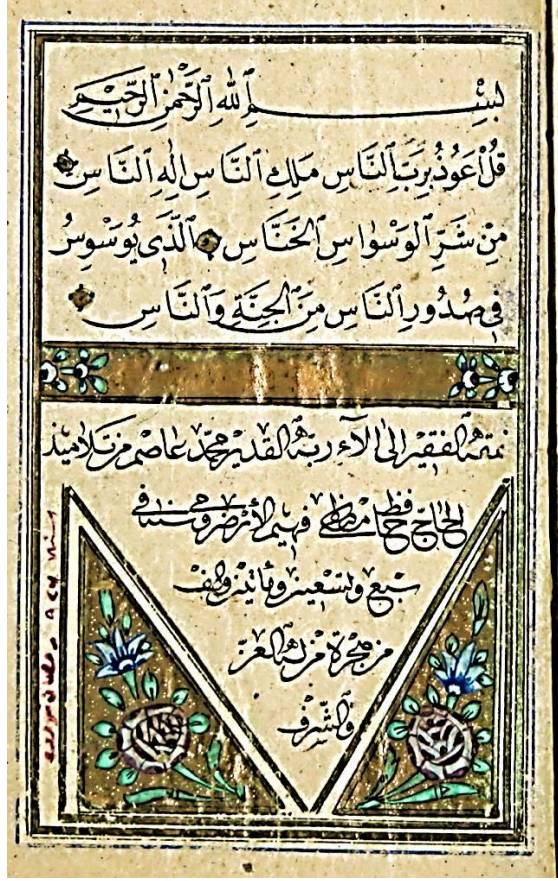 بِسْمِ ٱللهِ ٱلرَّحْمٰنِ ٱلرَّحِيْمِ
قُلْ اَعُوْذُ بِرَبِّ ٱلنَّاسِ مَلِكِ ٱلنَّاسِ اِلٰهِ ٱلنَّاسِ
مِنْ شَرِّ ٱلْوَسْوَاسِ ٱلْخَنَّاسِ ٱلَّذِى يُوَسْوِسُ
فِى صُدُورِ ٱلنَّاسِ مِنَ ٱلْجِنَّةِ وَٱلنَّاسِ
نمقه الفقير الى آلاء ربه القدير محمد عاصم من تلاميذ
الحاج حافظ مصطفى فهيم الأرضرومي
سبع وتسعين ومأتين والف
من هجرة من له العز
والشرف